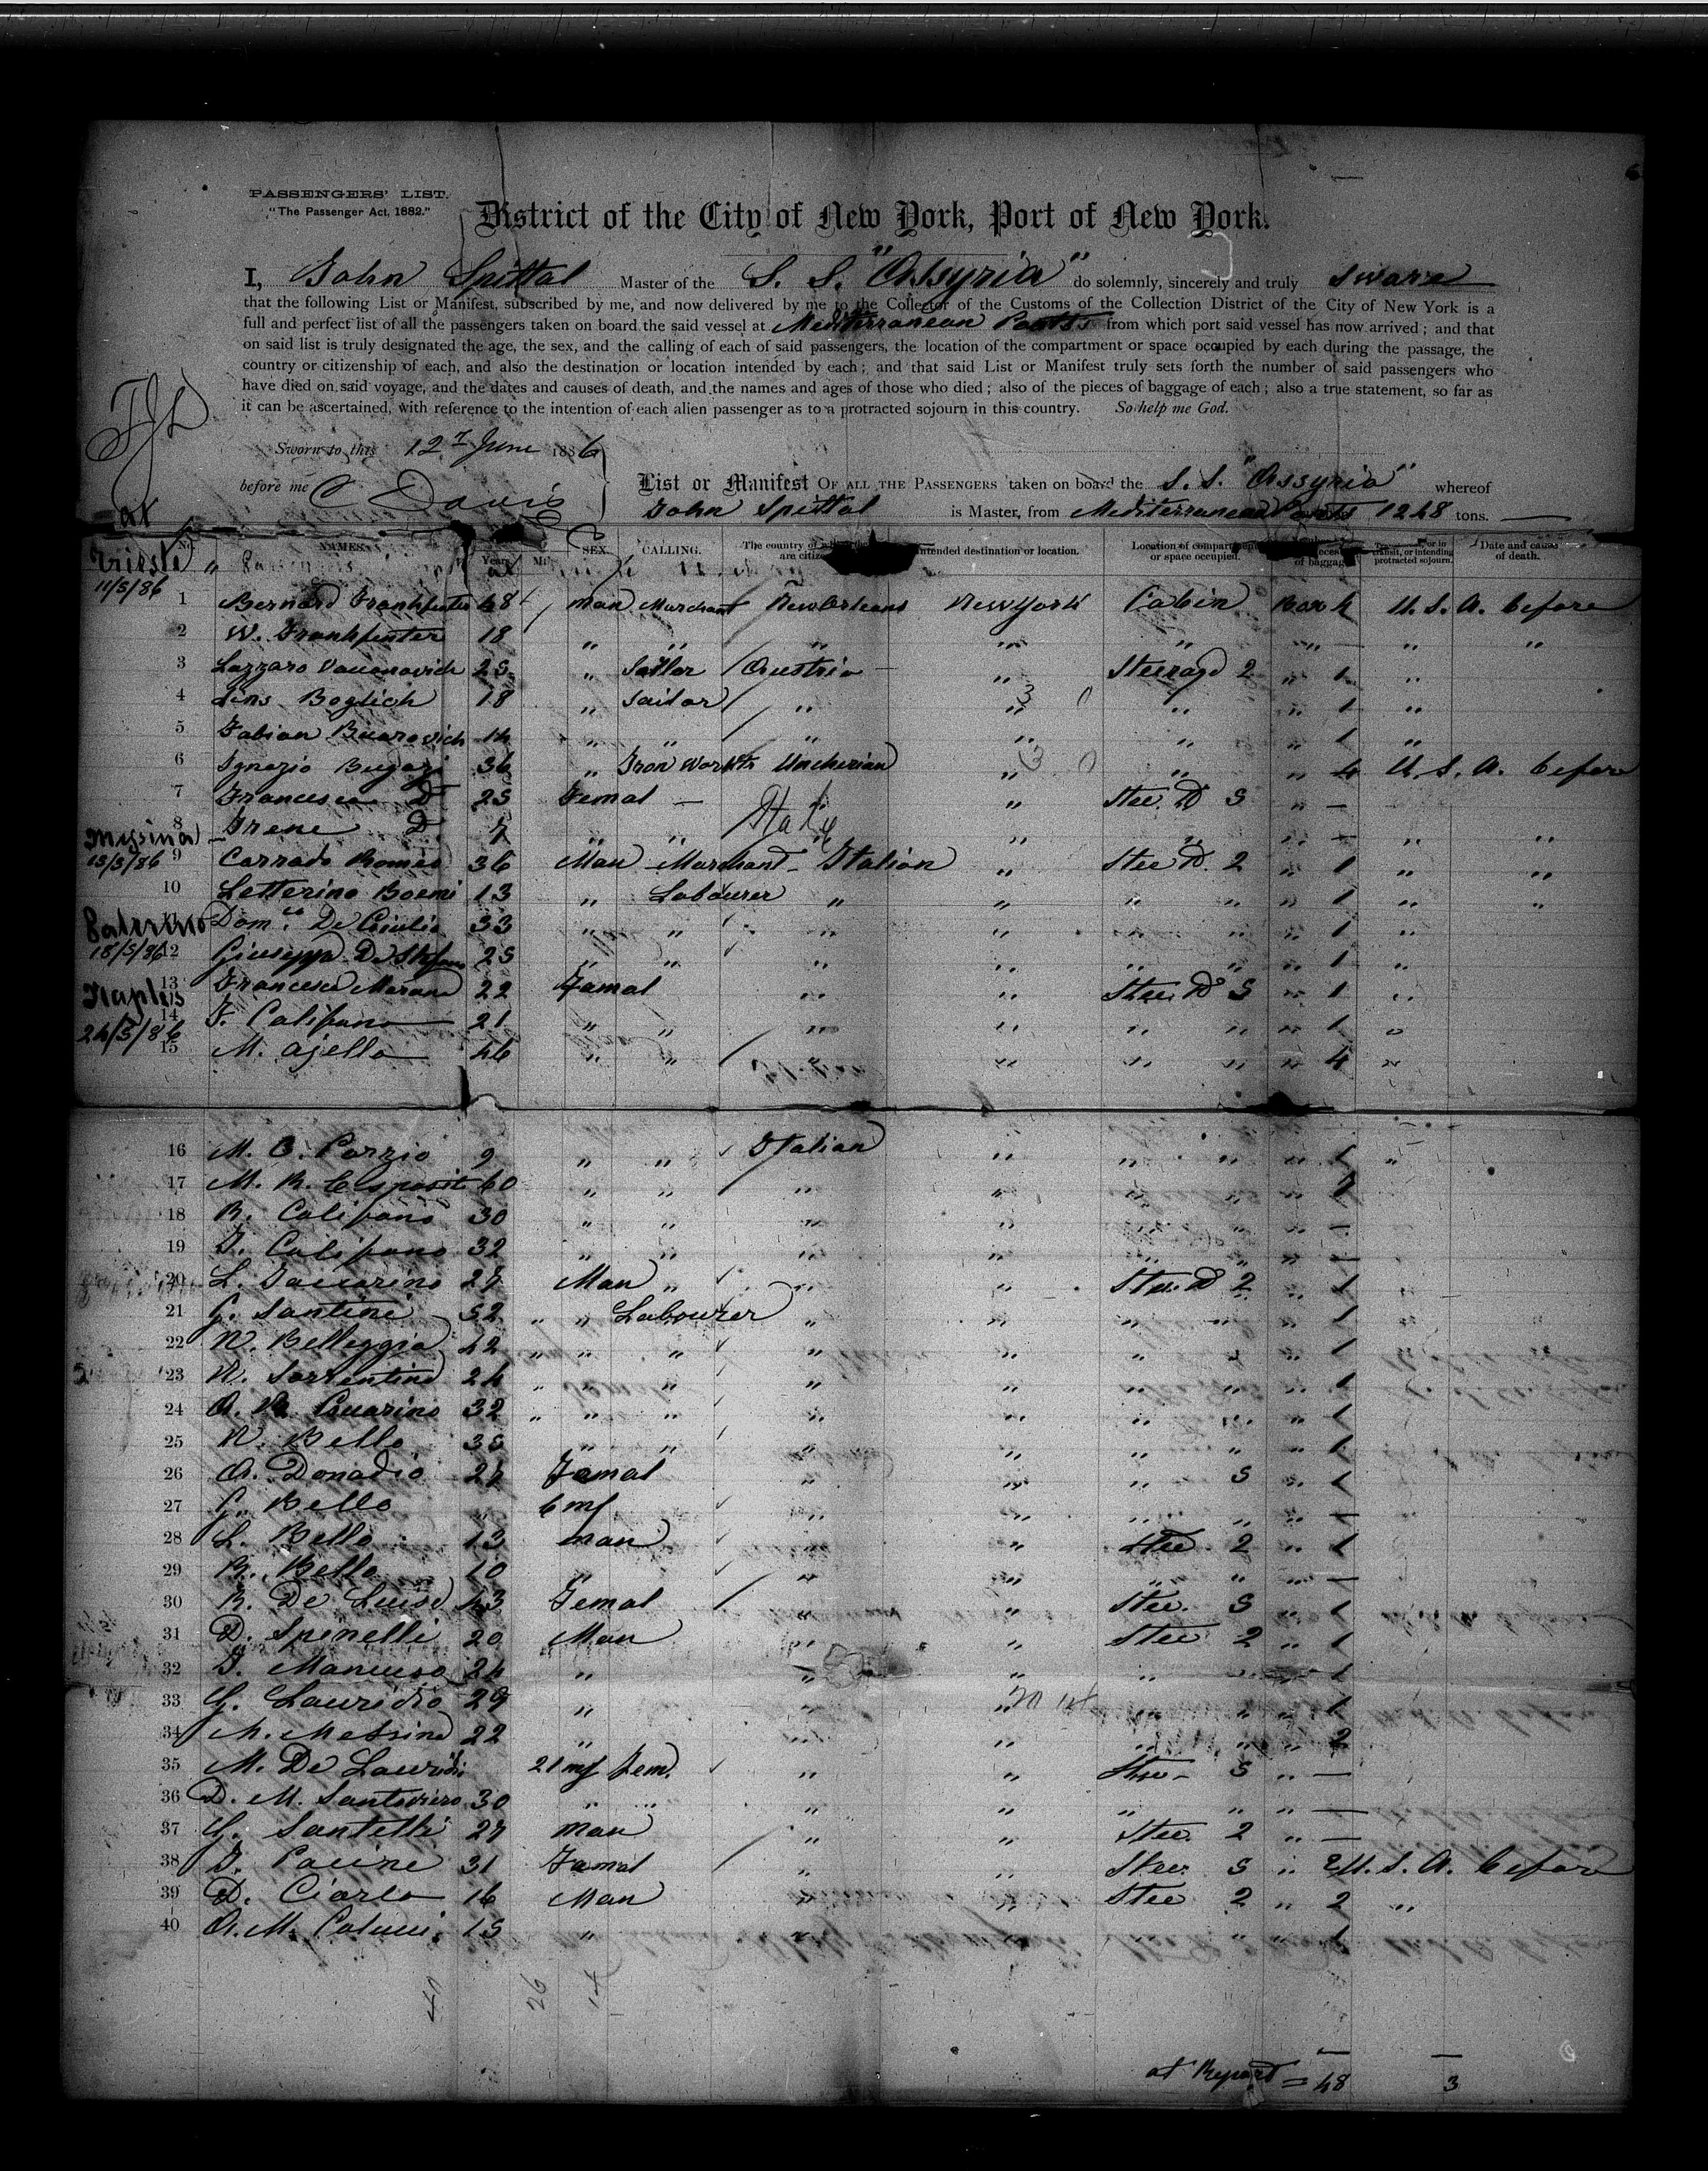 PASSENGERS' LIST.
"The Passenger Act, 1882."
District of the City of New York, Port of New York.
I, John Spittal Master of the S. S. "Assyria" do solemnly, sincerely and truly swear
that the following List or Manifest, subscribed by me, and now delivered by me to the Collector of the Customs of the Collection District of the City of New York is a
full and perfect list of all the passengers taken on board the said vessel at Mediterranean Ports from which port said vessel has now arrived; and that
on said list is truly designated the age, the sex, and the calling of each of said passengers, the location of the compartment or space occupied by each during the passage, the
country or citizenship of each, and also the destination or location intended by each; and that said List or Manifest truly sets forth the number of said passengers who
have died on said voyage, and the dates and causes of death, and the names and ages of those who died; also of the pieces of baggage of each; also a true statement, so far as
it can be ascertained, with reference to the intention of each alien passenger as to a protracted sojourn in this country. So help me God.
Sworn to this 12th June 1886
before me C Davis
List or Manifest OF ALL THE PASSENGERS taken on board the S. S. "Assyria" whereof
John Spittal is Master, from Mediterranean Ports 1248 tons.
at
No. NAMES. Years. SEX. CALLING. The country of are citizens Intended destination or location. Location of compartment or space occupied. of baggage transit, or intending protracted sojourn. Date and cause of death.
Trieste
11/5/86
1 Bernard Frankfurter 48 / man Merchant New Orleans New York Cabin U. S. A. before
2 W. Frankfurter 18 " " " " "
3 Lazzaro 25 " Sailor / Austria " Steerage 2 " 1 "
4 Boglich 18 " Sailor / " " " " 1 "
5 Fabian 14 " " " " " " 1 "
6 Ignazio 36 " Iron Works " " " 4 U. S. A. before
7 Francesca D 25 Femal — " Stee. D S " —
8 Irene D 7 " " Italy " " " — " "
Messina
13/5/86
9 Carrado Romeo 36 Man Marchant Italian " Stee D. 2 " 1 " "
10 Letterino Boemi 13 " Labourer " " " " 1 " "
Palermo
18/5/86
11 Dom.co De Giulio 33 " " " " " " 1 "
12 Giuseppe De Stefano 25 " " " " " " " 1 "
Naples
24/5/86
13 Francesca Marano 22 Famal " " Stee. D S " 1 "
14 F. Califano 21 " " " " " " " 1 "
15 M. Ajello 46 " " / " " " " " 4 "
16 M. C. Porzio 9 " " Italian " " " " 1 "
17 M. R. Esposit 60 " " / " " " " "
18 R. Califano 30 " " " " " " " —
19 F. Califano 32 " " " " " " " —
20 L. 27 Man " " " Stee. D 2 " 1 "
21 G. Santini 52 " " Labourer " " " " " 1
22 N. Belleggia 42 " " " " " " " 1
23 N. Sorrentino 24 " " " " " " " 1
24 32 " " " " " " " " 1
25 N. Bello 35 " " " " " " " 1
26 A. Donadio 27 Famal " " S " 1
27 G. Bello " 6 mf " " " " " —
28 L. Bello 13 man " " Stee 2 " 1
29 R. Bello 10 " " " " " " —
30 R. De Luise 43 Femal / " " Stee S " 1
31 D. Spinelli 20 Man " " Stee 2 " 1
32 Mancuso 24 " " " " " 1
33 G. Lauridio 29 " " " " " 1
34 M. Messina 22 " " " " " 2
35 M. De Lauridi 21 mf fem. " " Stee S " —
36 D. M. 30 " " " " " " " —
37 G. Santelli 27 man " " Stee. 2 " —
38 31 Famal / " " Stee. S " 2 U. S. A. before
39 D. Ciarlo 16 Man " " Stee 2 " 2 "
40 A. M. Colucci 15 " " " " " " 1
40 26 14
at Report = 48 3